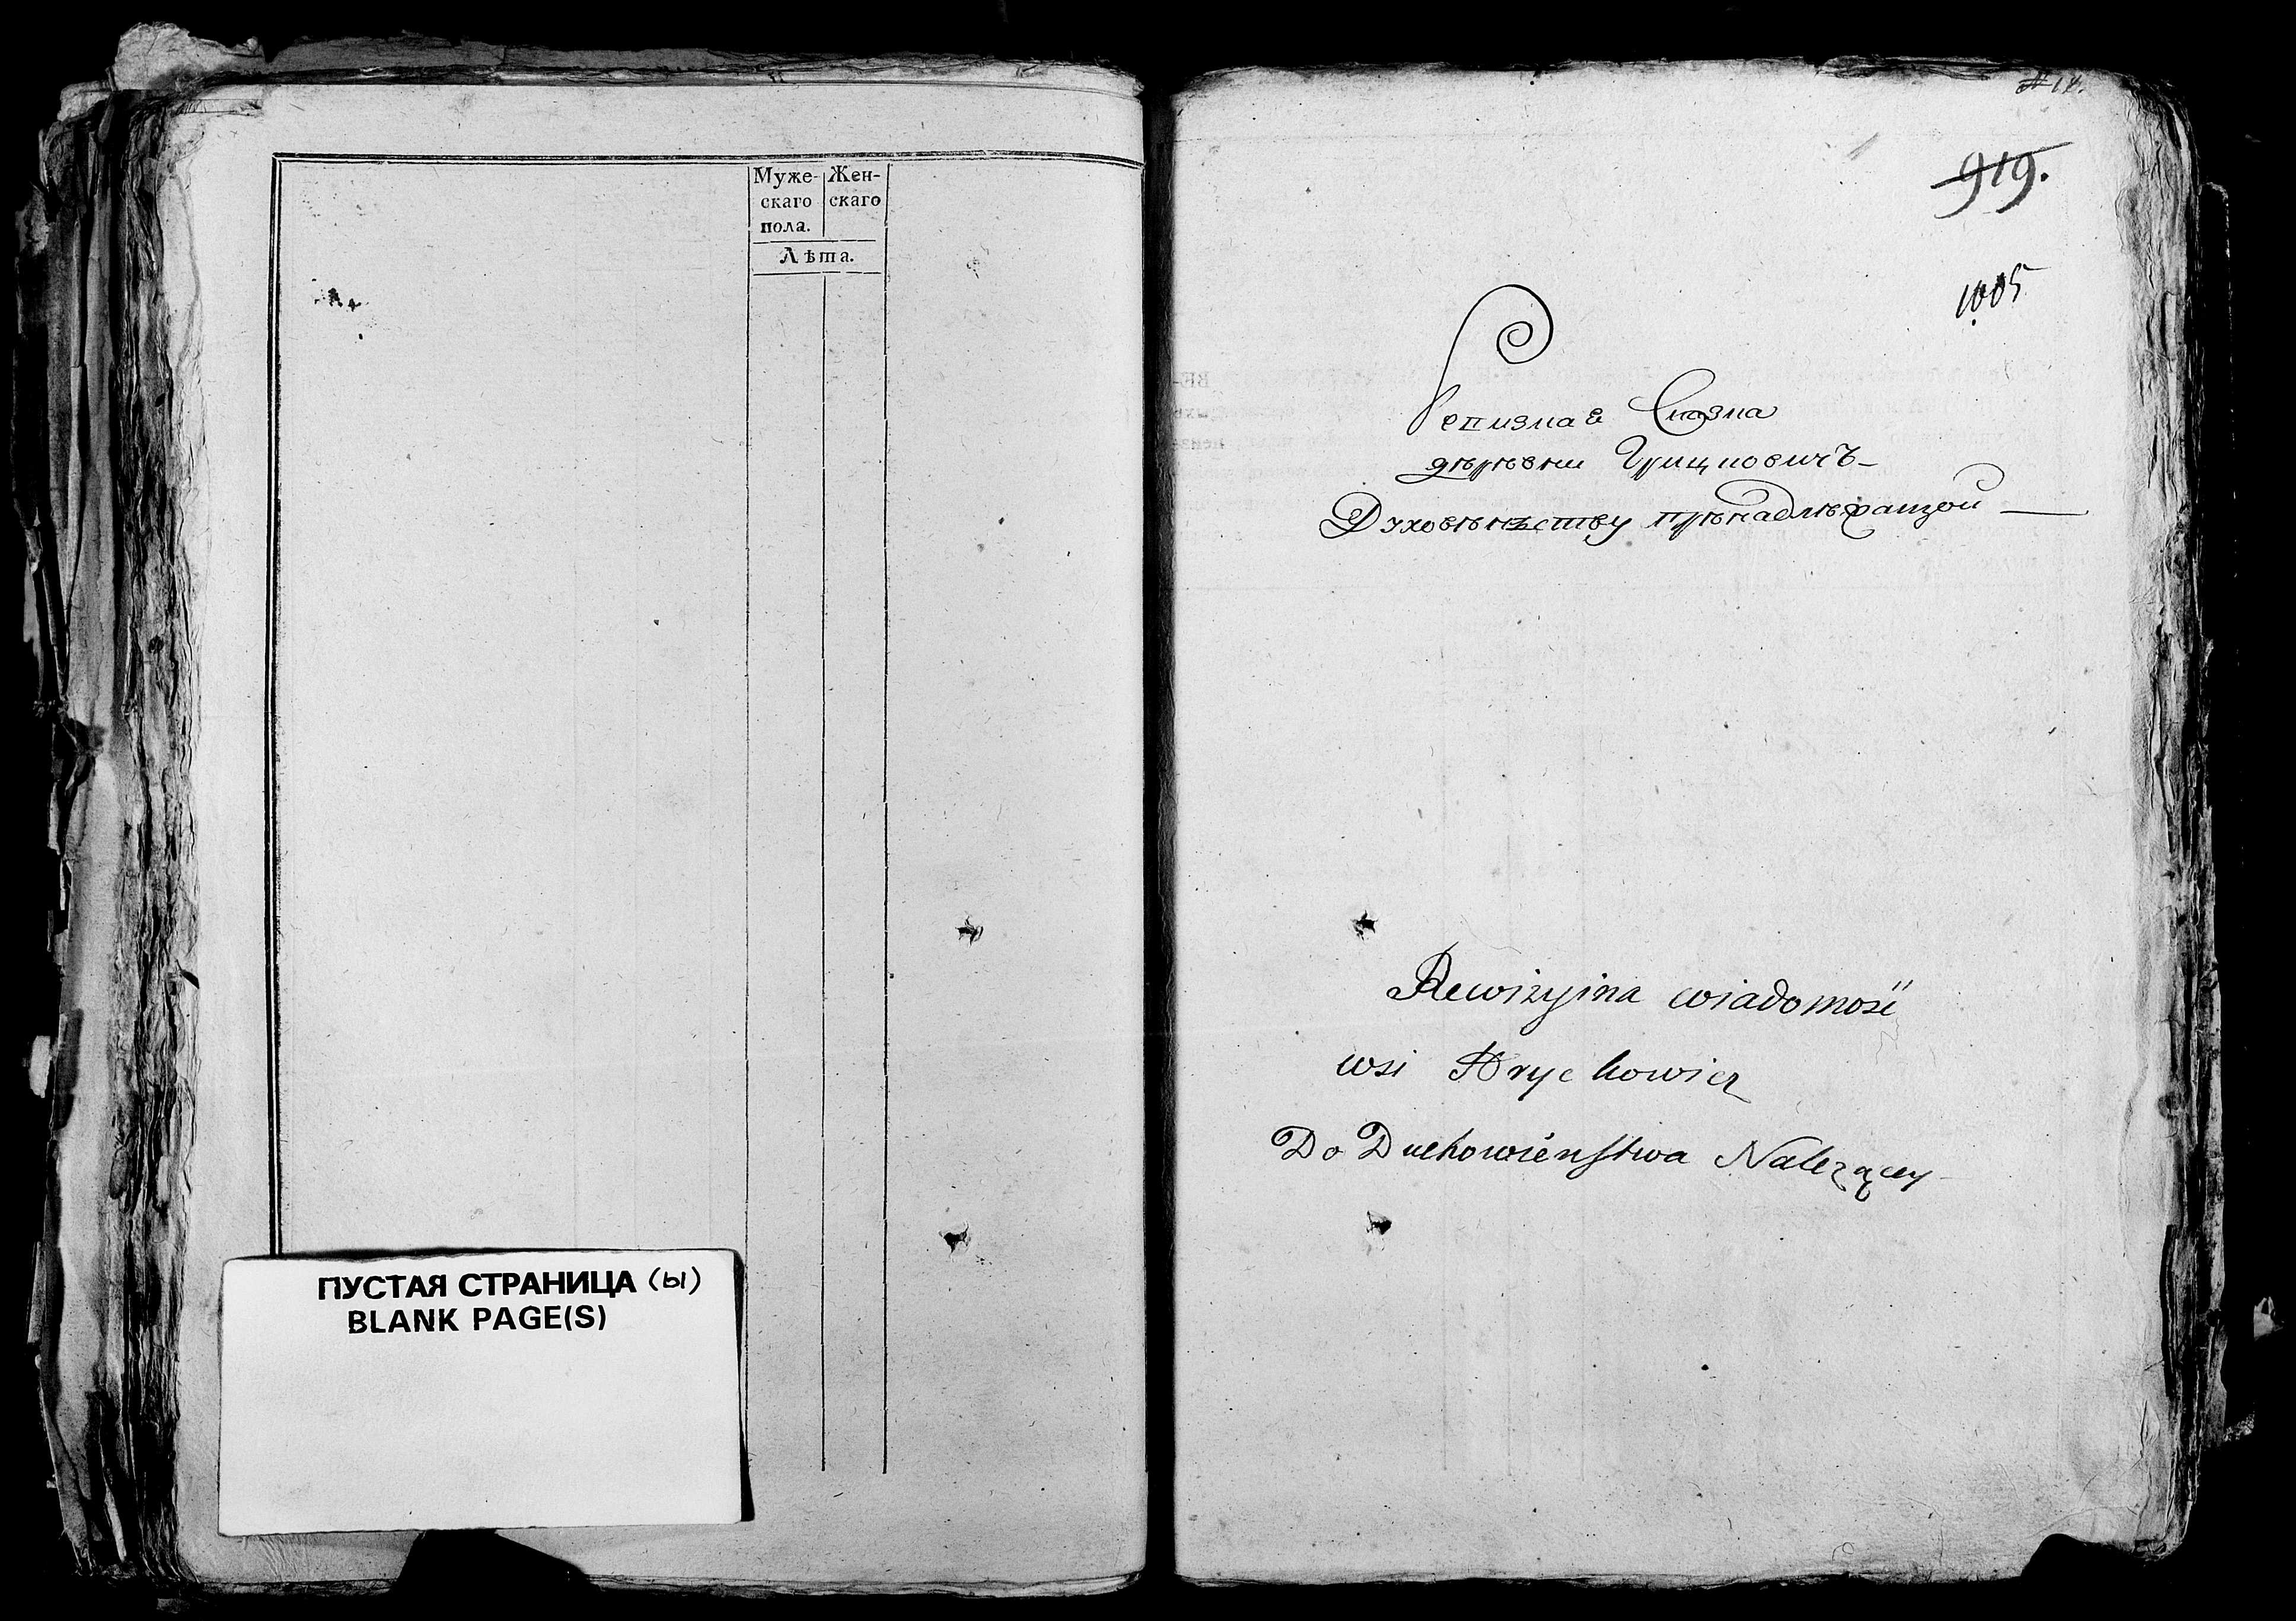 Муже-
скаго
пола.
Жен-
скаго
Лѣта.
ПУСТАЯ СТРАНИЦА (Ы)
BLANK PAGE(S)
919.
1005
Ревизная Сказка
дѣрѣвни Грицковичъ
Духовѣнству прѣнадлѣжащой
Rewizyina wiadomość
wsi Hryckowicz
Do Duchowieństwa Należącey